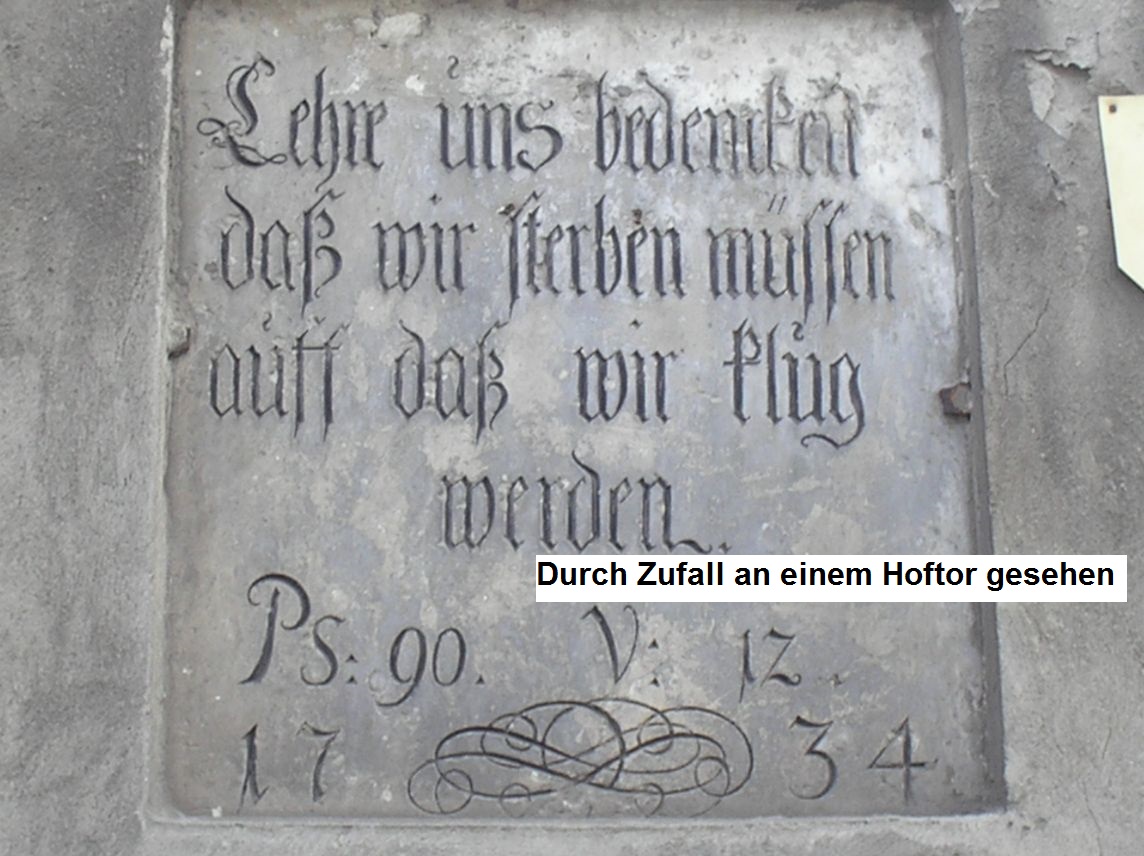 Lehre uns bedencken
daß wir sterben müssen
auff daß wir klug
werden.
Durch Zufall an einem Hoftor gesehen
Ps: 90. V: 12.
17 34